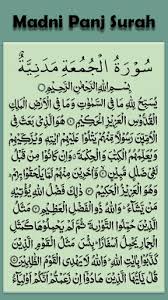 Madni Panj Surah
سُوْرَةُ الْجُمُعَةِ مَدَنِيَّةٌ
بِسْمِ اللهِ الرَّحْمٰنِ الرَّحِيْمِ
يُسَبِّحُ لِلّٰهِ مَا فِى السَّمٰوٰتِ وَمَا فِى الْاَرْضِ الْمَلِكِ
الْقُدُّوْسِ الْعَزِيْزِ الْحَكِيْمِ ۝ هُوَ الَّذِىْ بَعَثَ فِى
الْاُمِّيّٖنَ رَسُوْلًا مِّنْهُمْ يَتْلُوْا عَلَيْهِمْ اٰيٰتِهٖ وَيُزَكِّيْهِمْ
وَيُعَلِّمُهُمُ الْكِتٰبَ وَالْحِكْمَةَ وَاِنْ كَانُوْا مِنْ قَبْلُ لَفِىْ
ضَلٰلٍ مُّبِيْنٍ ۝ وَّاٰخَرِيْنَ مِنْهُمْ لَمَّا يَلْحَقُوْا بِهِمْ وَهُوَ
الْعَزِيْزُ الْحَكِيْمُ ۝ ذٰلِكَ فَضْلُ اللهِ يُؤْتِيْهِ
مَنْ يَّشَآءُ وَاللهُ ذُو الْفَضْلِ الْعَظِيْمِ ۝ مَثَلُ
الَّذِيْنَ حُمِّلُوا التَّوْرٰىةَ ثُمَّ لَمْ يَحْمِلُوْهَا كَمَثَلِ
الْحِمَارِ يَحْمِلُ اَسْفَارًا بِئْسَ مَثَلُ الْقَوْمِ الَّذِيْنَ
كَذَّبُوْا بِاٰيٰتِ اللهِ وَاللهُ لَا يَهْدِى الْقَوْمَ الظّٰلِمِيْنَ ۝
قُلْ يٰٓاَيُّهَا الَّذِيْنَ هَادُوْٓا اِنْ زَعَمْتُمْ اَنَّكُمْ اَوْلِيَآءُ